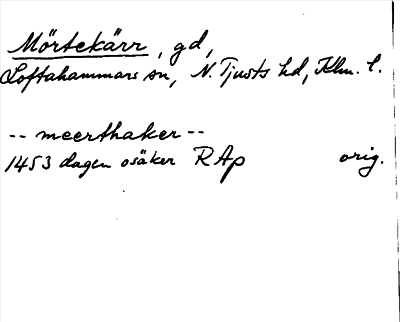 Mörtekärr, gd,
Loftahammars sn, N. Tjusts hd, Klm. l.
-- meerthaker --
1453 dagen osäker RAp orig.